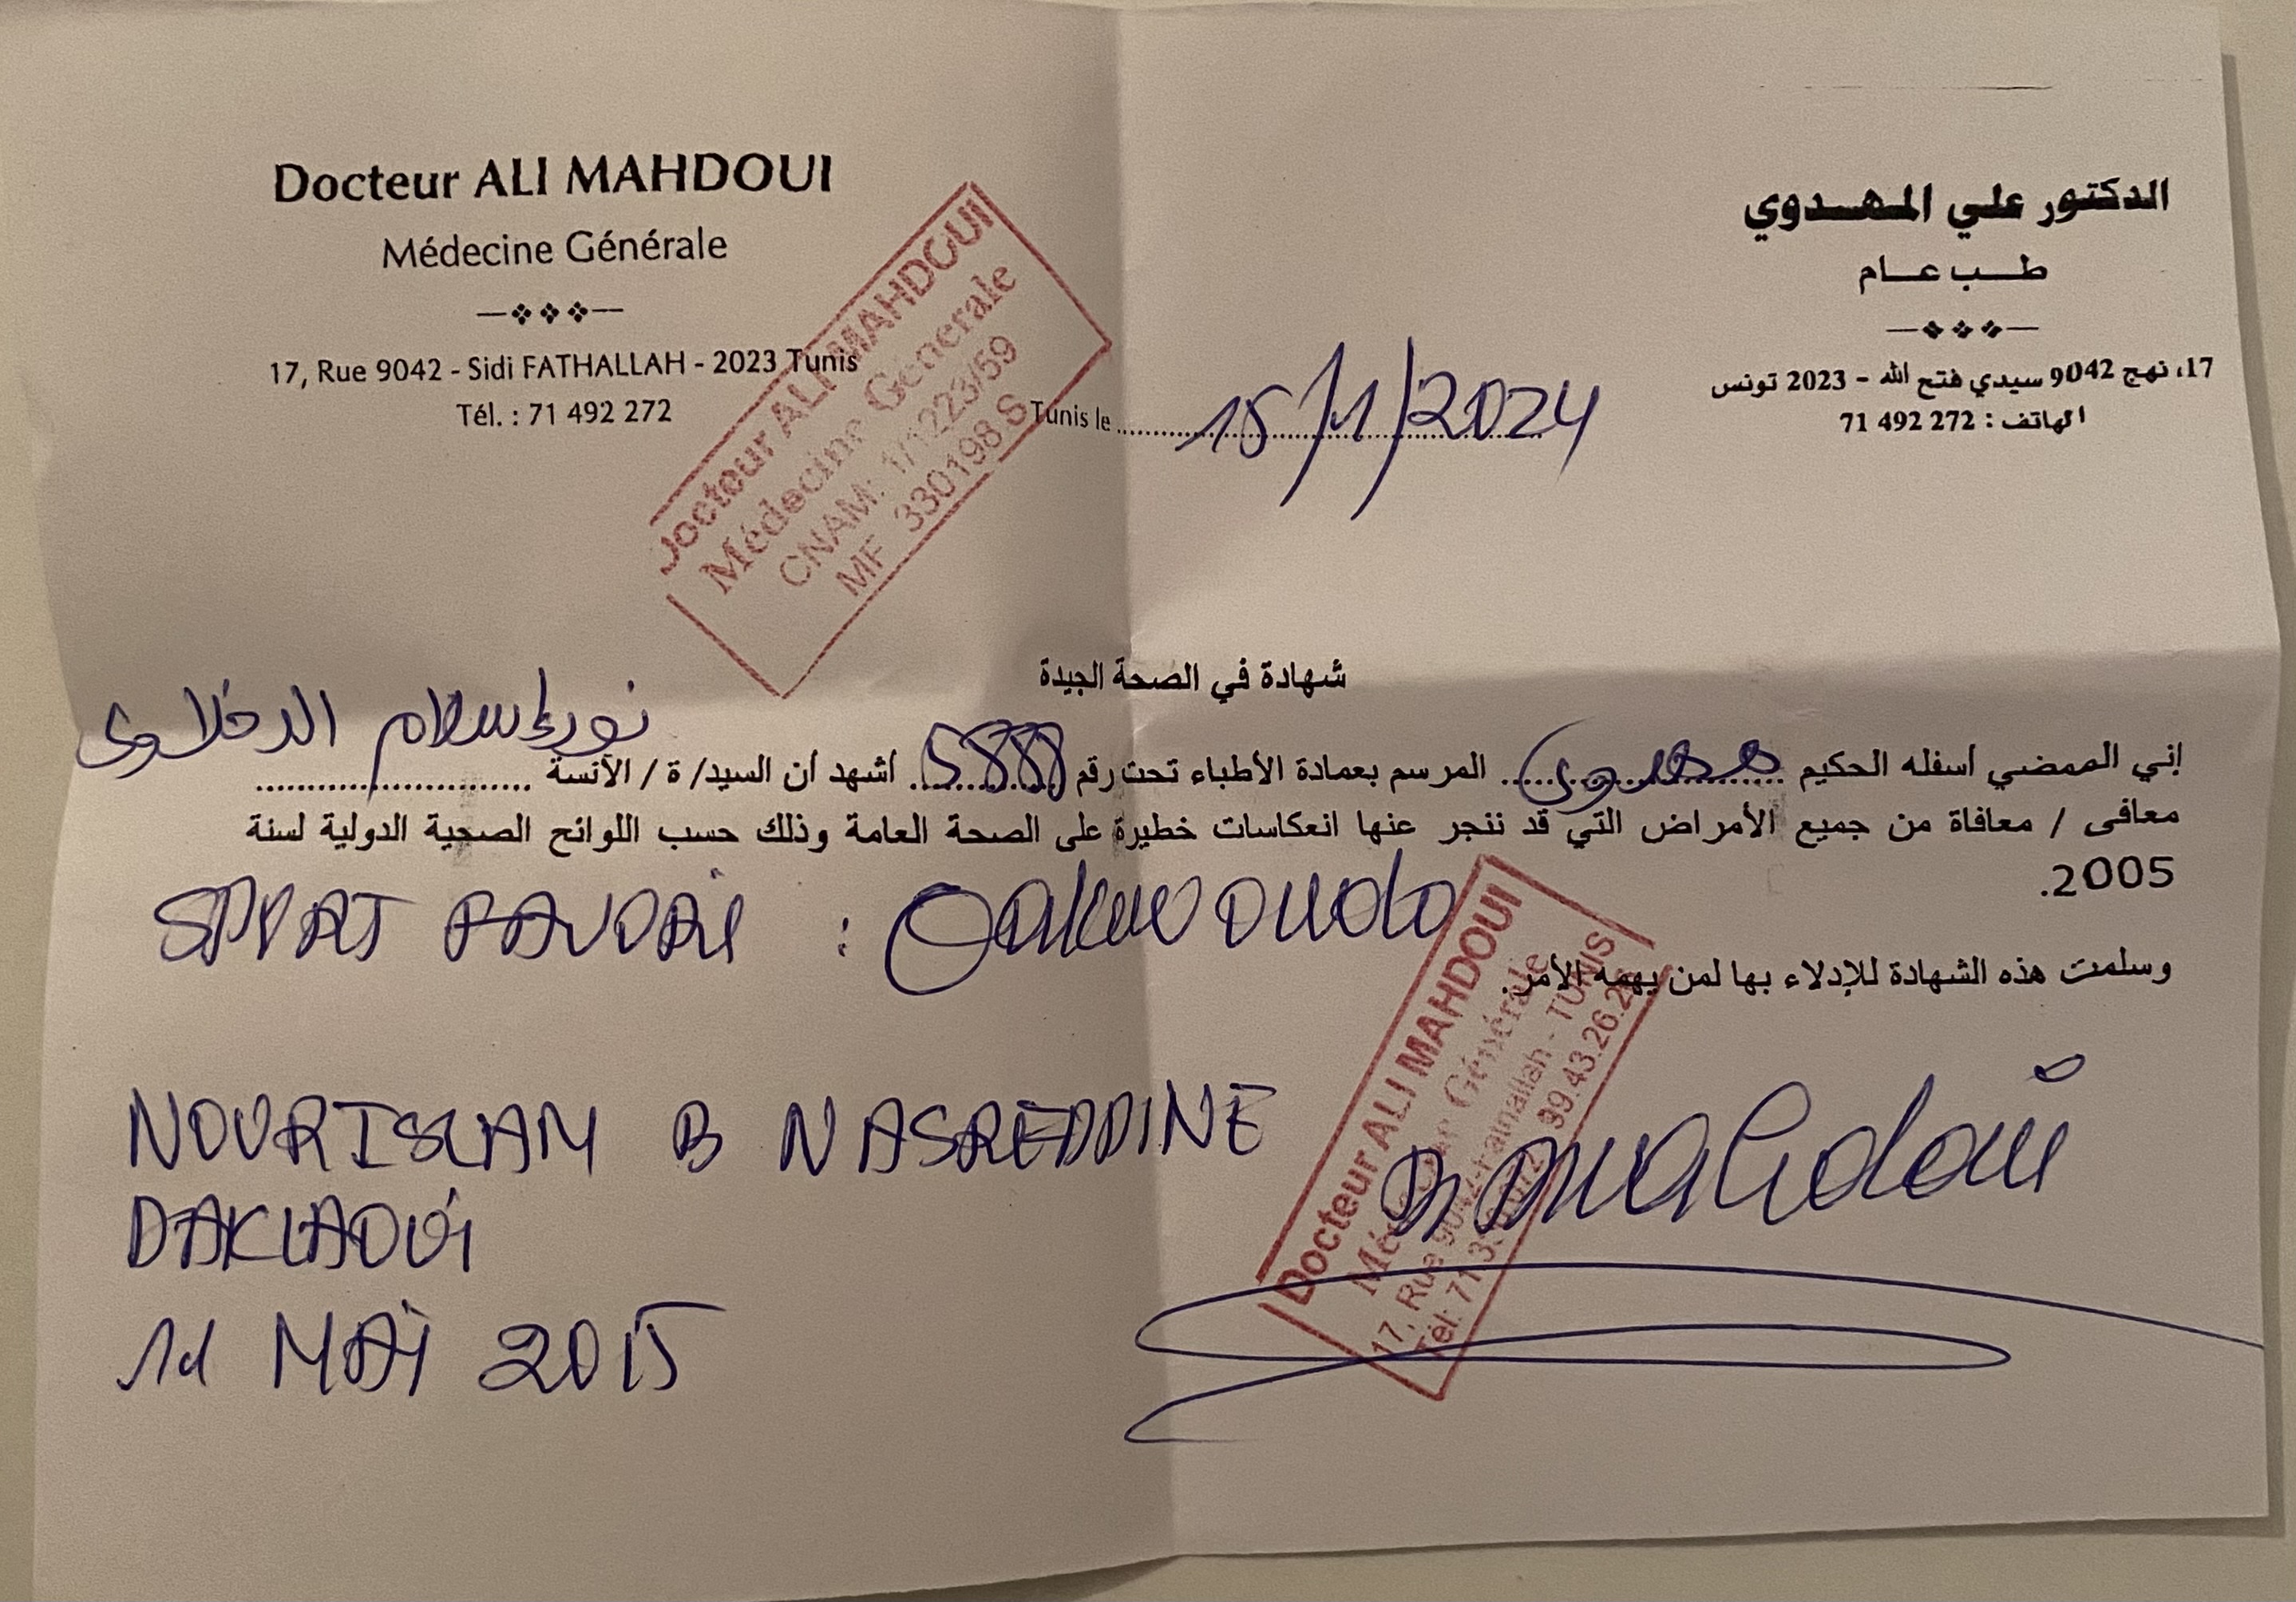 Docteur ALI MAHDOUI
Médecine Générale
17, Rue 9042 - Sidi FATHALLAH - 2023 Tunis
Tél. : 71 492 272
الدكتور علي المهدوي
طب عام
17، نهج 9042 سيدي فتح الله - 2023 تونس
الهاتف : 272 492 71
Docteur ALI MAHDOUI
Médecine Générale
CNAM: 1/1223/59
MF 330198 S
Tunis le 15/1/2024
شهادة في الصحة الجيدة
إني الممضي أسفله الحكيم مهدوي المرسم بعمادة الأطباء تحت رقم 5888 أشهد أن السيد/ ة / الآنسة نور إسلام الدخلاوي
معافى / معافاة من جميع الأمراض التي قد ننجر عنها انعكاسات خطيرة على الصحة العامة وذلك حسب اللوائح الصحية الدولية لسنة
2005.
SPORT FAVORI :
وسلمت هذه الشهادة للإدلاء بها لمن يهمه الأمر.
NOURISLAM B NASREDDINE
DAKLAOUI
11 MAI 2015
Docteur ALI MAHDOUI
Médecine Générale
17, Rue 9042 - TUNIS
Tél: 71 99.43.26.2
Dr Mahdoui